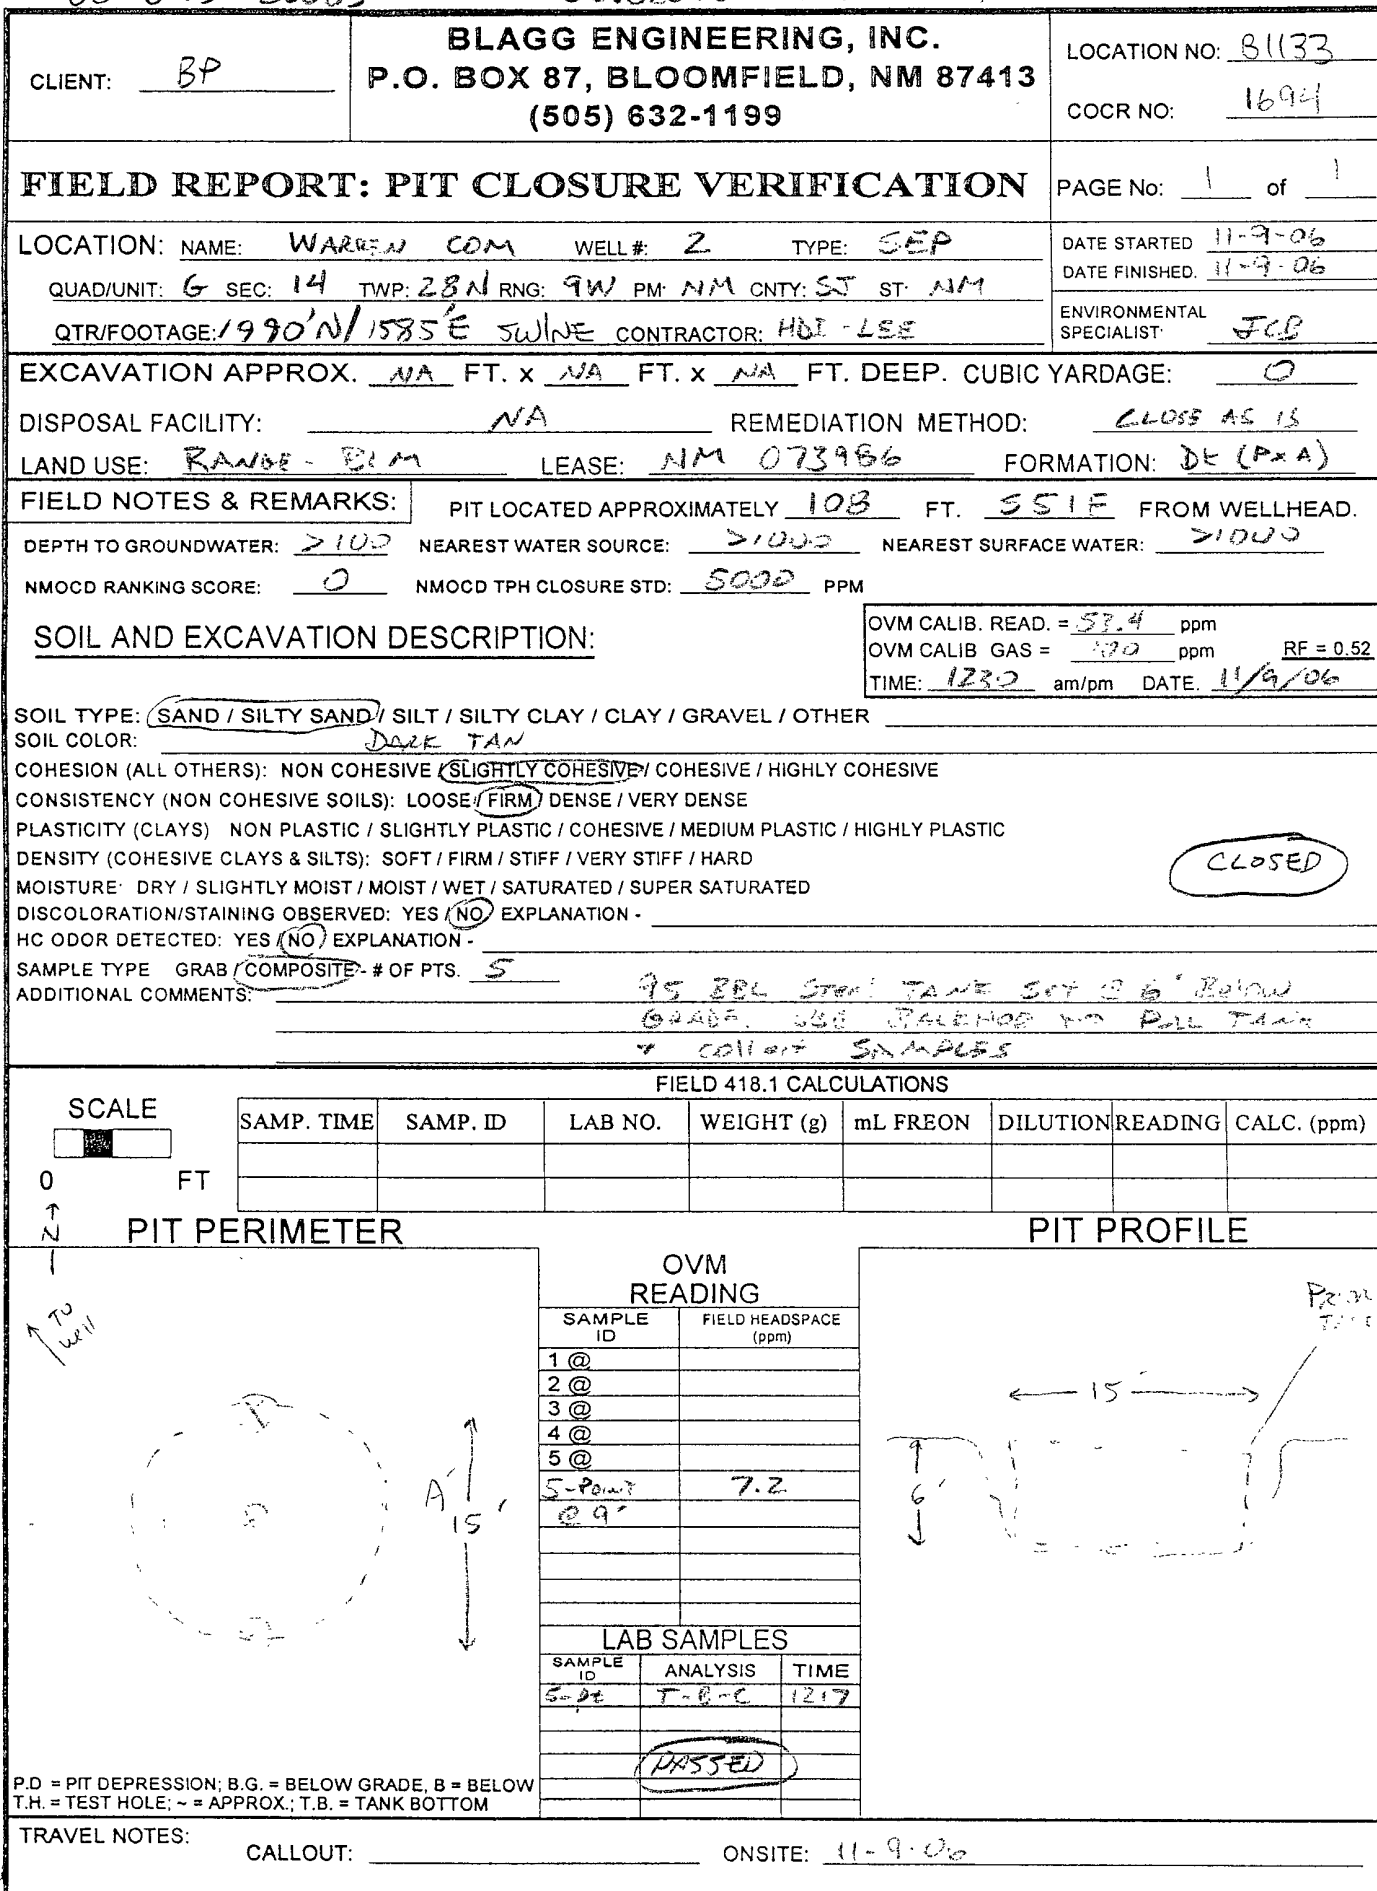 BLAGG ENGINEERING, INC.
P.O. BOX 87, BLOOMFIELD, NM 87413
(505) 632-1199
CLIENT: BP
LOCATION NO: B1133
COCR NO: 1694
FIELD REPORT: PIT CLOSURE VERIFICATION
PAGE No: 1 of 1
LOCATION: NAME: WARREN COM WELL #: 2 TYPE: SEP
QUAD/UNIT: G SEC: 14 TWP: 28N RNG: 9W PM: NM CNTY: SJ ST: NM
QTR/FOOTAGE: 1990'N/1585'E SW/NE CONTRACTOR: HDI - LEE
DATE STARTED 11-9-06
DATE FINISHED. 11-9-06
ENVIRONMENTAL
SPECIALIST: JCB
EXCAVATION APPROX. NA FT. x NA FT. x NA FT. DEEP. CUBIC YARDAGE: 0
DISPOSAL FACILITY: NA REMEDIATION METHOD: CLOSE AS IS
LAND USE: RANGE - BLM LEASE: NM 073986 FORMATION: DK (PxA)
FIELD NOTES & REMARKS: PIT LOCATED APPROXIMATELY 108 FT. S51E FROM WELLHEAD.
DEPTH TO GROUNDWATER: >100 NEAREST WATER SOURCE: >1000 NEAREST SURFACE WATER: >1000
NMOCD RANKING SCORE: 0 NMOCD TPH CLOSURE STD: 5000 PPM
SOIL AND EXCAVATION DESCRIPTION:
OVM CALIB. READ. = 53.4 ppm
OVM CALIB GAS = 100 ppm RF = 0.52
TIME: 1230 am/pm DATE. 11/9/06
SOIL TYPE: SAND / SILTY SAND / SILT / SILTY CLAY / CLAY / GRAVEL / OTHER
SOIL COLOR: DARK TAN
COHESION (ALL OTHERS): NON COHESIVE / SLIGHTLY COHESIVE / COHESIVE / HIGHLY COHESIVE
CONSISTENCY (NON COHESIVE SOILS): LOOSE / FIRM / DENSE / VERY DENSE
PLASTICITY (CLAYS) NON PLASTIC / SLIGHTLY PLASTIC / COHESIVE / MEDIUM PLASTIC / HIGHLY PLASTIC
DENSITY (COHESIVE CLAYS & SILTS): SOFT / FIRM / STIFF / VERY STIFF / HARD
MOISTURE: DRY / SLIGHTLY MOIST / MOIST / WET / SATURATED / SUPER SATURATED
CLOSED
DISCOLORATION/STAINING OBSERVED: YES / NO EXPLANATION -
HC ODOR DETECTED: YES / NO EXPLANATION -
SAMPLE TYPE GRAB / COMPOSITE - # OF PTS. 5
ADDITIONAL COMMENTS: 95 BBL Steel TANK SET @ 6' Below
GRADE. USE BACKHOE TO PULL TANK
& collect SAMPLES
FIELD 418.1 CALCULATIONS
SCALE
0 FT
SAMP. TIME SAMP. ID LAB NO. WEIGHT (g) mL FREON DILUTION READING CALC. (ppm)
N
PIT PERIMETER
PIT PROFILE
TO
well
A'
15'
OVM
READING
SAMPLE ID FIELD HEADSPACE (ppm)
1 @
2 @
3 @
4 @
5 @
5-Point 7.2
@ 9'
15'
6'
LAB SAMPLES
SAMPLE ID ANALYSIS TIME
5-pt T-B-C 1217
PASSED
P.D = PIT DEPRESSION; B.G. = BELOW GRADE, B = BELOW
T.H. = TEST HOLE; ~ = APPROX.; T.B. = TANK BOTTOM
TRAVEL NOTES:
CALLOUT: ONSITE: 11-9-06